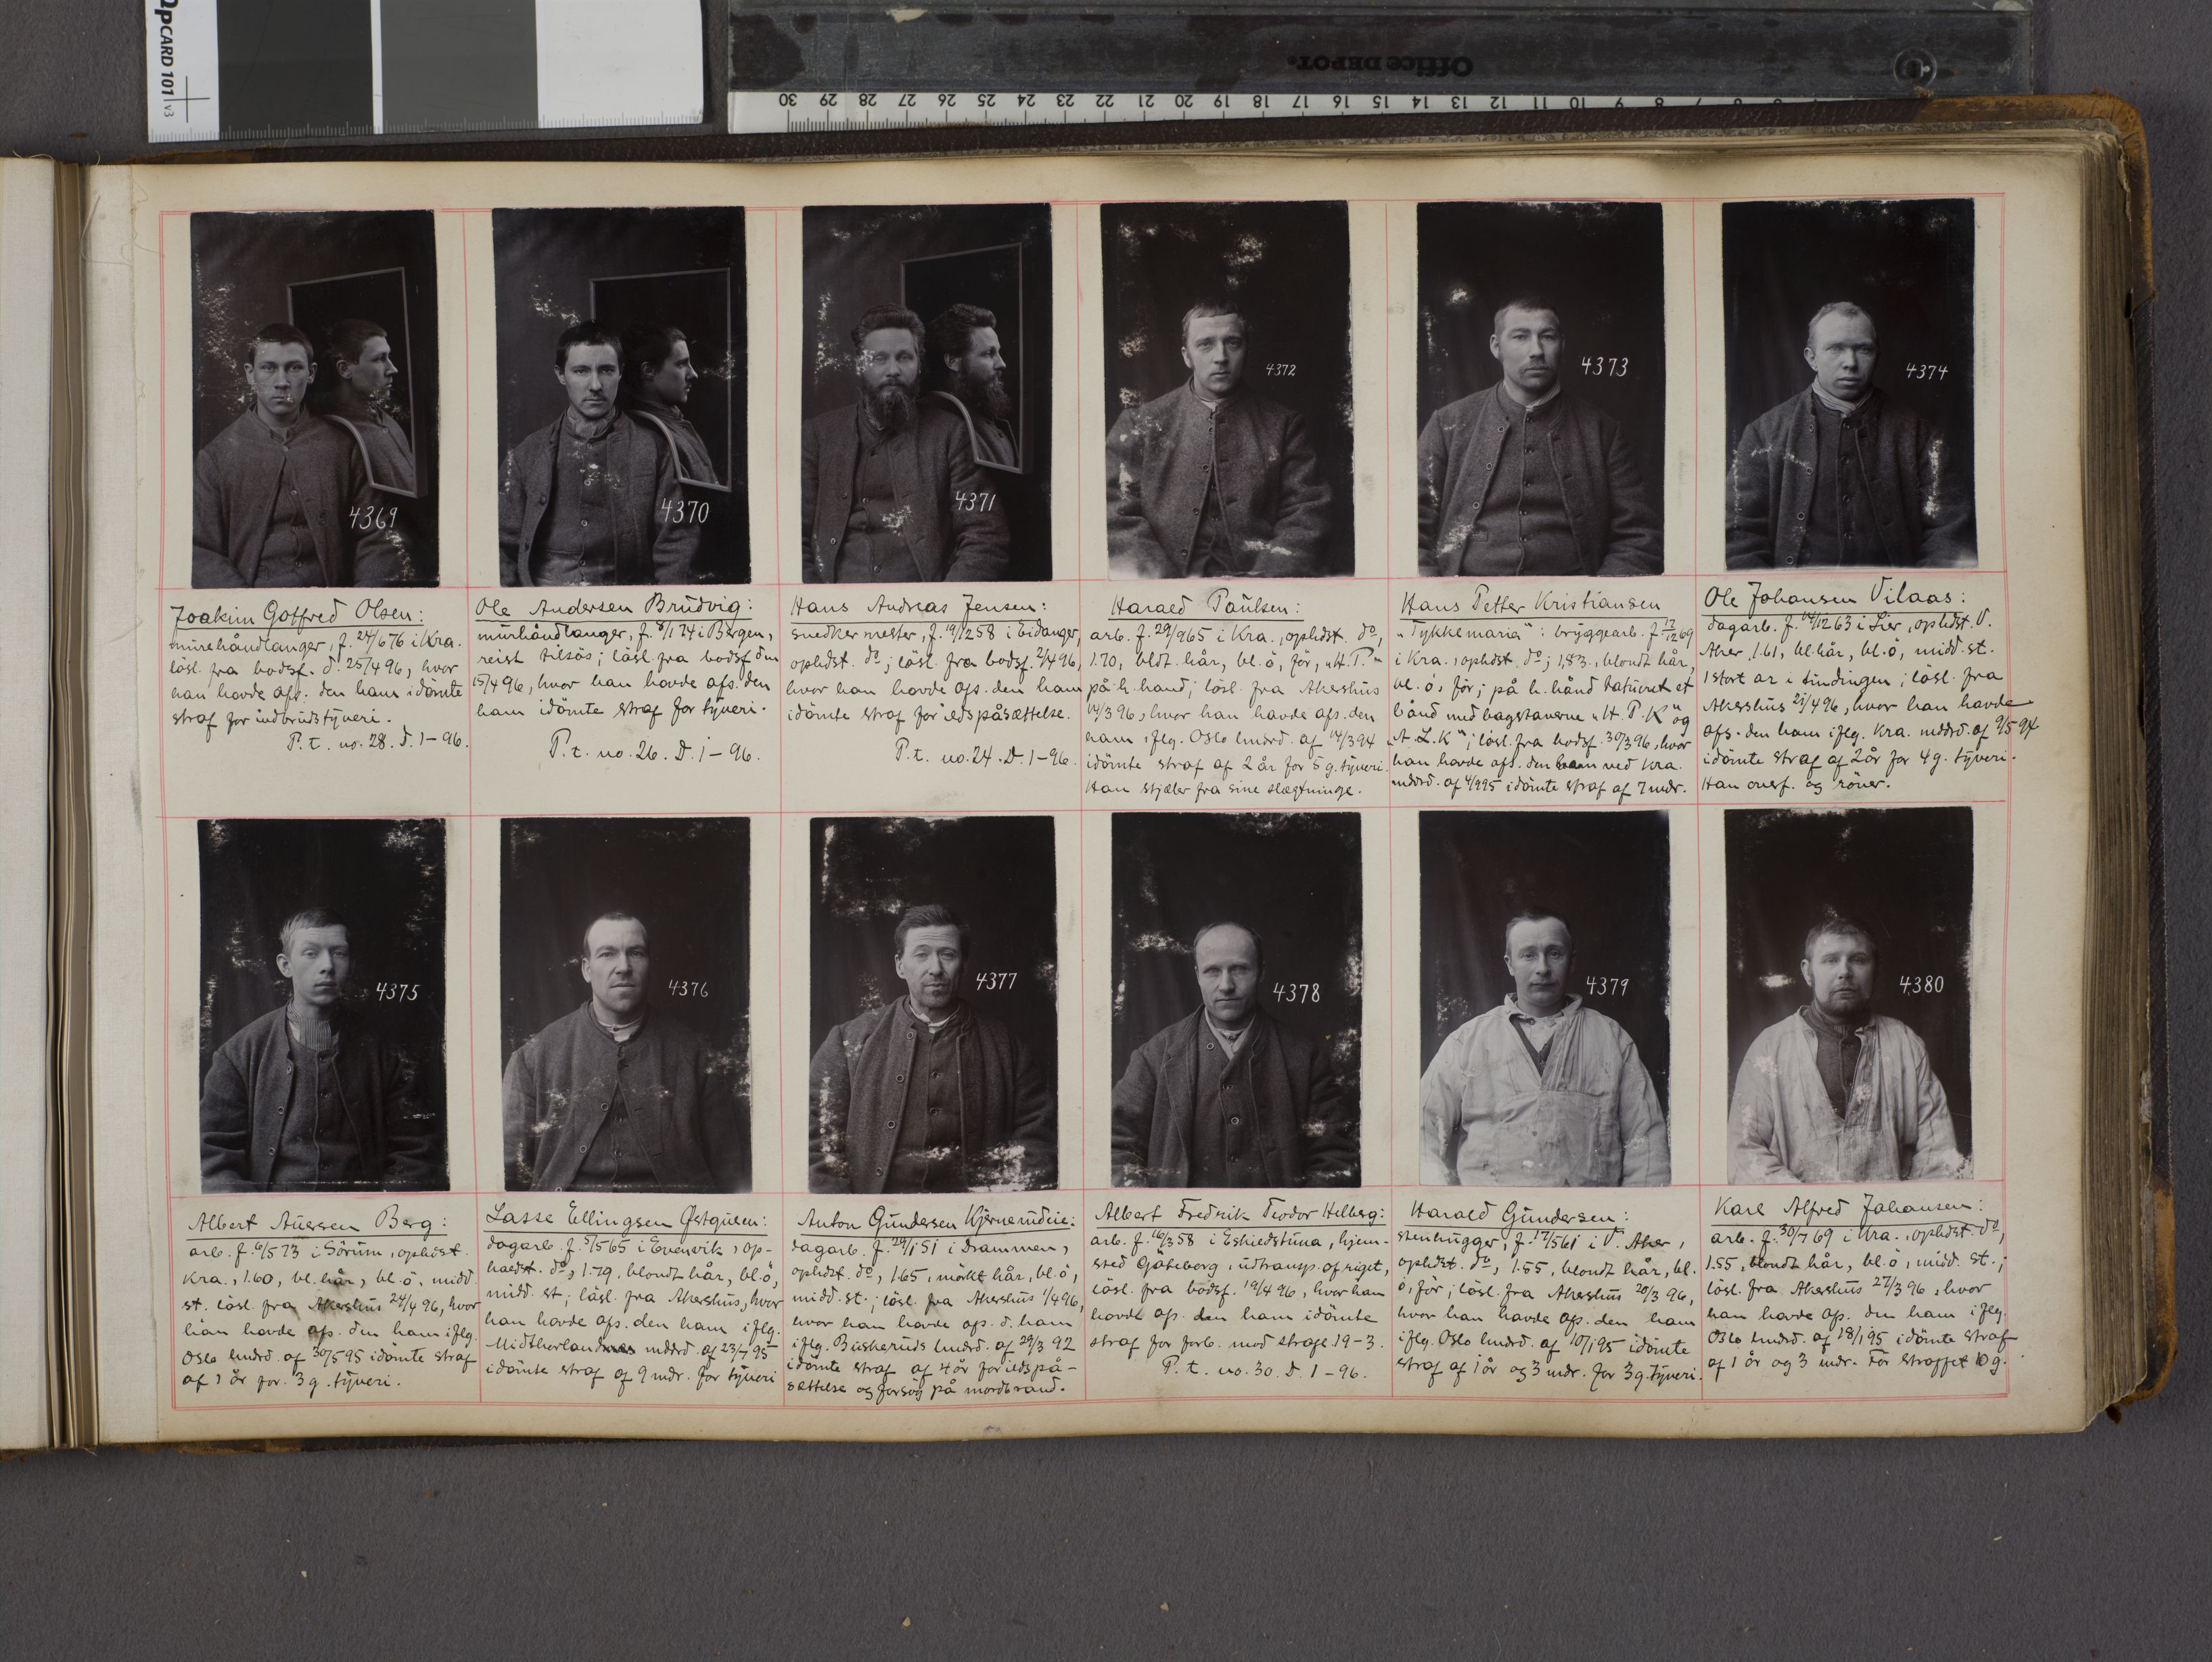 QPCARD 101 v3
Office DEPOT.
30 29 28 27 26 25 24 23 22 21 20 19 18 17 16 15 14 13 12 11 10 9 8 7 6
4369
4370
4371
4372
4373
4374
Joakim Gotfred Olsen:
murehåndlanger, f. 24/6 76 i Kra.
lösl. fra bodsf. d. 25/4 96, hvor
han havde afs. den ham idömte
straf for indbrudstyveri.
P. t. no. 28. D. 1-96.
Ole Andersen Brudvig:
murhåndlanger, f. 8/1 74 i Bergen,
reist tilsös; lösl. fra bodsf den
15/4 96, hvor han havde afs. den
ham idömte straf for tyveri.
P. t. no. 26. D. 1-96.
Hans Andreas Jensen:
snedkermester, f. 19/12 58 i Eidanger,
opholdst. do; lösl. fra bodsf. 2/4 96,
hvor han havde afs. den ham
idömte straf for ildspåsættelse.
P. t. no. 24. D. 1-96.
Harald Paulsen:
arb. f. 29/9 65 i Kra., opholdst. do,
1.70, bldt. hår, bl. ö, för, "H. P."
på h. hand; lösl. fra Akershus
14/3 96, hvor han havde afs. den
ham iflg. Oslo lmdrd. af 14/3 94
idömte straf af 2 år for 5 g. tyveri.
Han stjæler fra sine slægtninge.
Hans Petter Kristiansen
"Tykkemaria": bryggearb. f. 13/12 69
i Kra., opholdst. do; 1,83., blondt hår,
bl. ö, för; på h. hånd tatuveret et
bånd med bogstaverne "H. P. K" og
"A. L. K"; lösl. fra bodsf. 30/3 96, hvor
han havde afs. den ham ved Kra.
mddrd. af 4/9 95 idömte straf af 7 mdr.
Ole Johansen Vilaas:
dagarb. f. 14/12 63 i Lier, opholdst. V.
Aker, 1.61, bl. hår, bl. ö, midd. st.
1 stort ar i tindingen; lösl. fra
Akershus 21/4 96, hvor han havde
afs. den ham iflg. Kra. mddrd. af 9/5 94
idömte straf af 2 år for 4 g. tyveri.
Han overf. og röver.
4375
4376
4377
4378
4379
4380
Albert Aversen Berg:
arb. f. 6/5 73 i Sörum, opholdst.
Kra., 1.60, bl. hår, bl. ö. midd.
st. lösl. fra Akershus 24/4 96, hvor
han havde afs. den ham iflg.
Oslo lmdrd. af 30/5 95 idömte straf
af 1 år for 3 g. tyveri.
Lasse Ellingsen Østgulen:
dagarb. f. 5/5 65 i Evenvik, op-
holdst. do, 1.79. blondt hår, bl. ö,
midd. st; lösl. fra Akershus, hvor
han havde afs. den ham iflg.
Midthorland mddrd. af 23/7 95
idömte straf af 9 mdr. for tyveri
Anton Gundersen Kjernerudeie:
dagarb. f. 29/1 51 i Drammen,
opholdst. do, 1.65, mörkt hår, bl. ö,
midd. st.; lösl. fra Akershus 1/4 96,
hvor han havde afs. d. ham
iflg. Buskeruds lmdrd. af 29/3 92
idömte straf af 4 år for ildspå-
sættelse og forsög på mordbrand.
Albert Fredrik Teodor Helberg:
arb. f. 16/3 58 i Eskilstuna, hjem-
sted Göteborg, udtransp. af riget,
lösl. fra bodsf. 19/4 96, hvor han
havde afs. den ham idömte
straf for forb. mod strafl. 19-3.
P. t. no. 30. D. 1-96.
Harald Gundersen:
stenhugger, f. 17/5 61 i V. Aker,
opholdst. do, 1.55, blondt hår, bl.
ö, för; lösl. fra Akershus 20/3 96,
hvor han havde afs. den ham
iflg. Oslo lmdrd. af 10/1 95 idömte
straf af 1 år og 3 mdr. for 3 g. tyveri.
Karl Alfred Johansen:
arb. f. 30/7 69 i Kra., opholdst. do,
1.55, blondt hår, bl. ö, midd. st.;
lösl. fra Akershus 27/3 96, hvor
han havde afs. den ham iflg.
Oslo lmdrd. af 18/1 95 idömte straf
af 1 år og 3 mdr. För straffet 10 g.